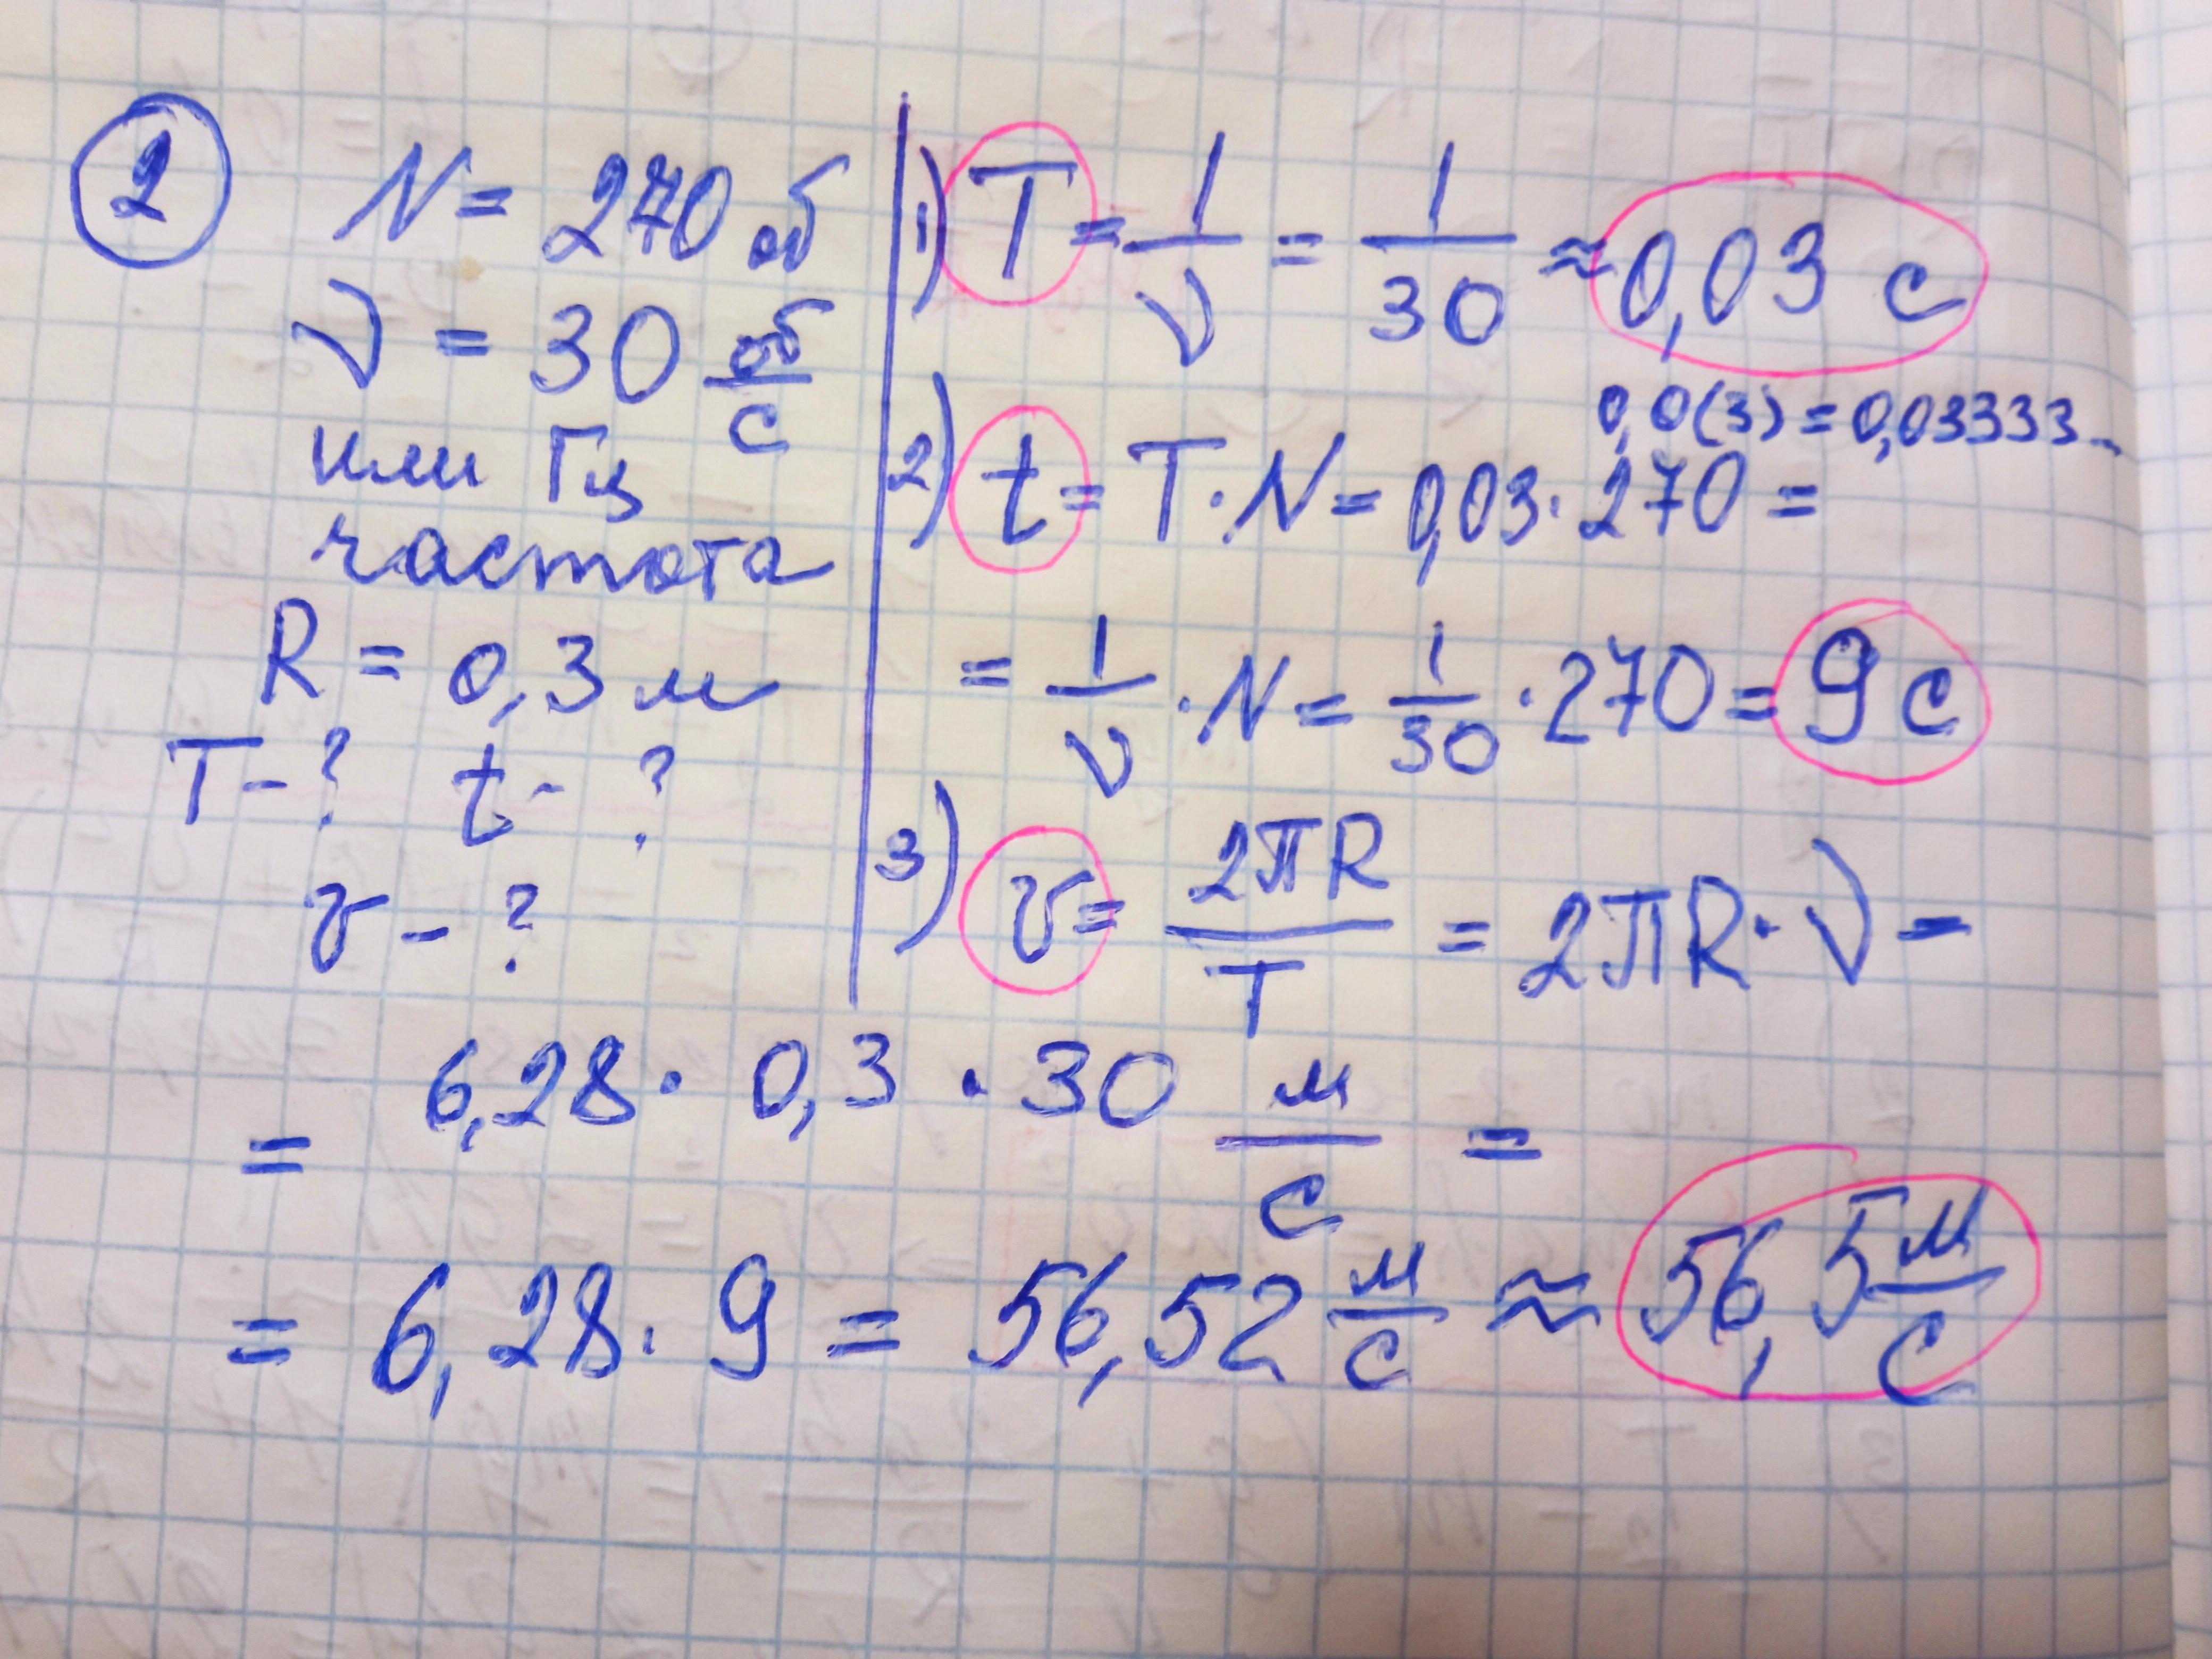 2
N = 270 об
ν = 30 об/с
или Гц
частота
R = 0,3 м
T - ? t - ?
v - ?
1) T = 1/ν = 1/30 ≈ 0,03 с
0,0(3) = 0,03333...
2) t = T · N = 0,03 · 270 =
= 1/ν · N = 1/30 · 270 = 9 с
3) v = 2πR/T = 2πR · ν =
= 6,28 · 0,3 · 30 м/с =
= 6,28 · 9 = 56,52 м/с ≈ 56,5 м/с